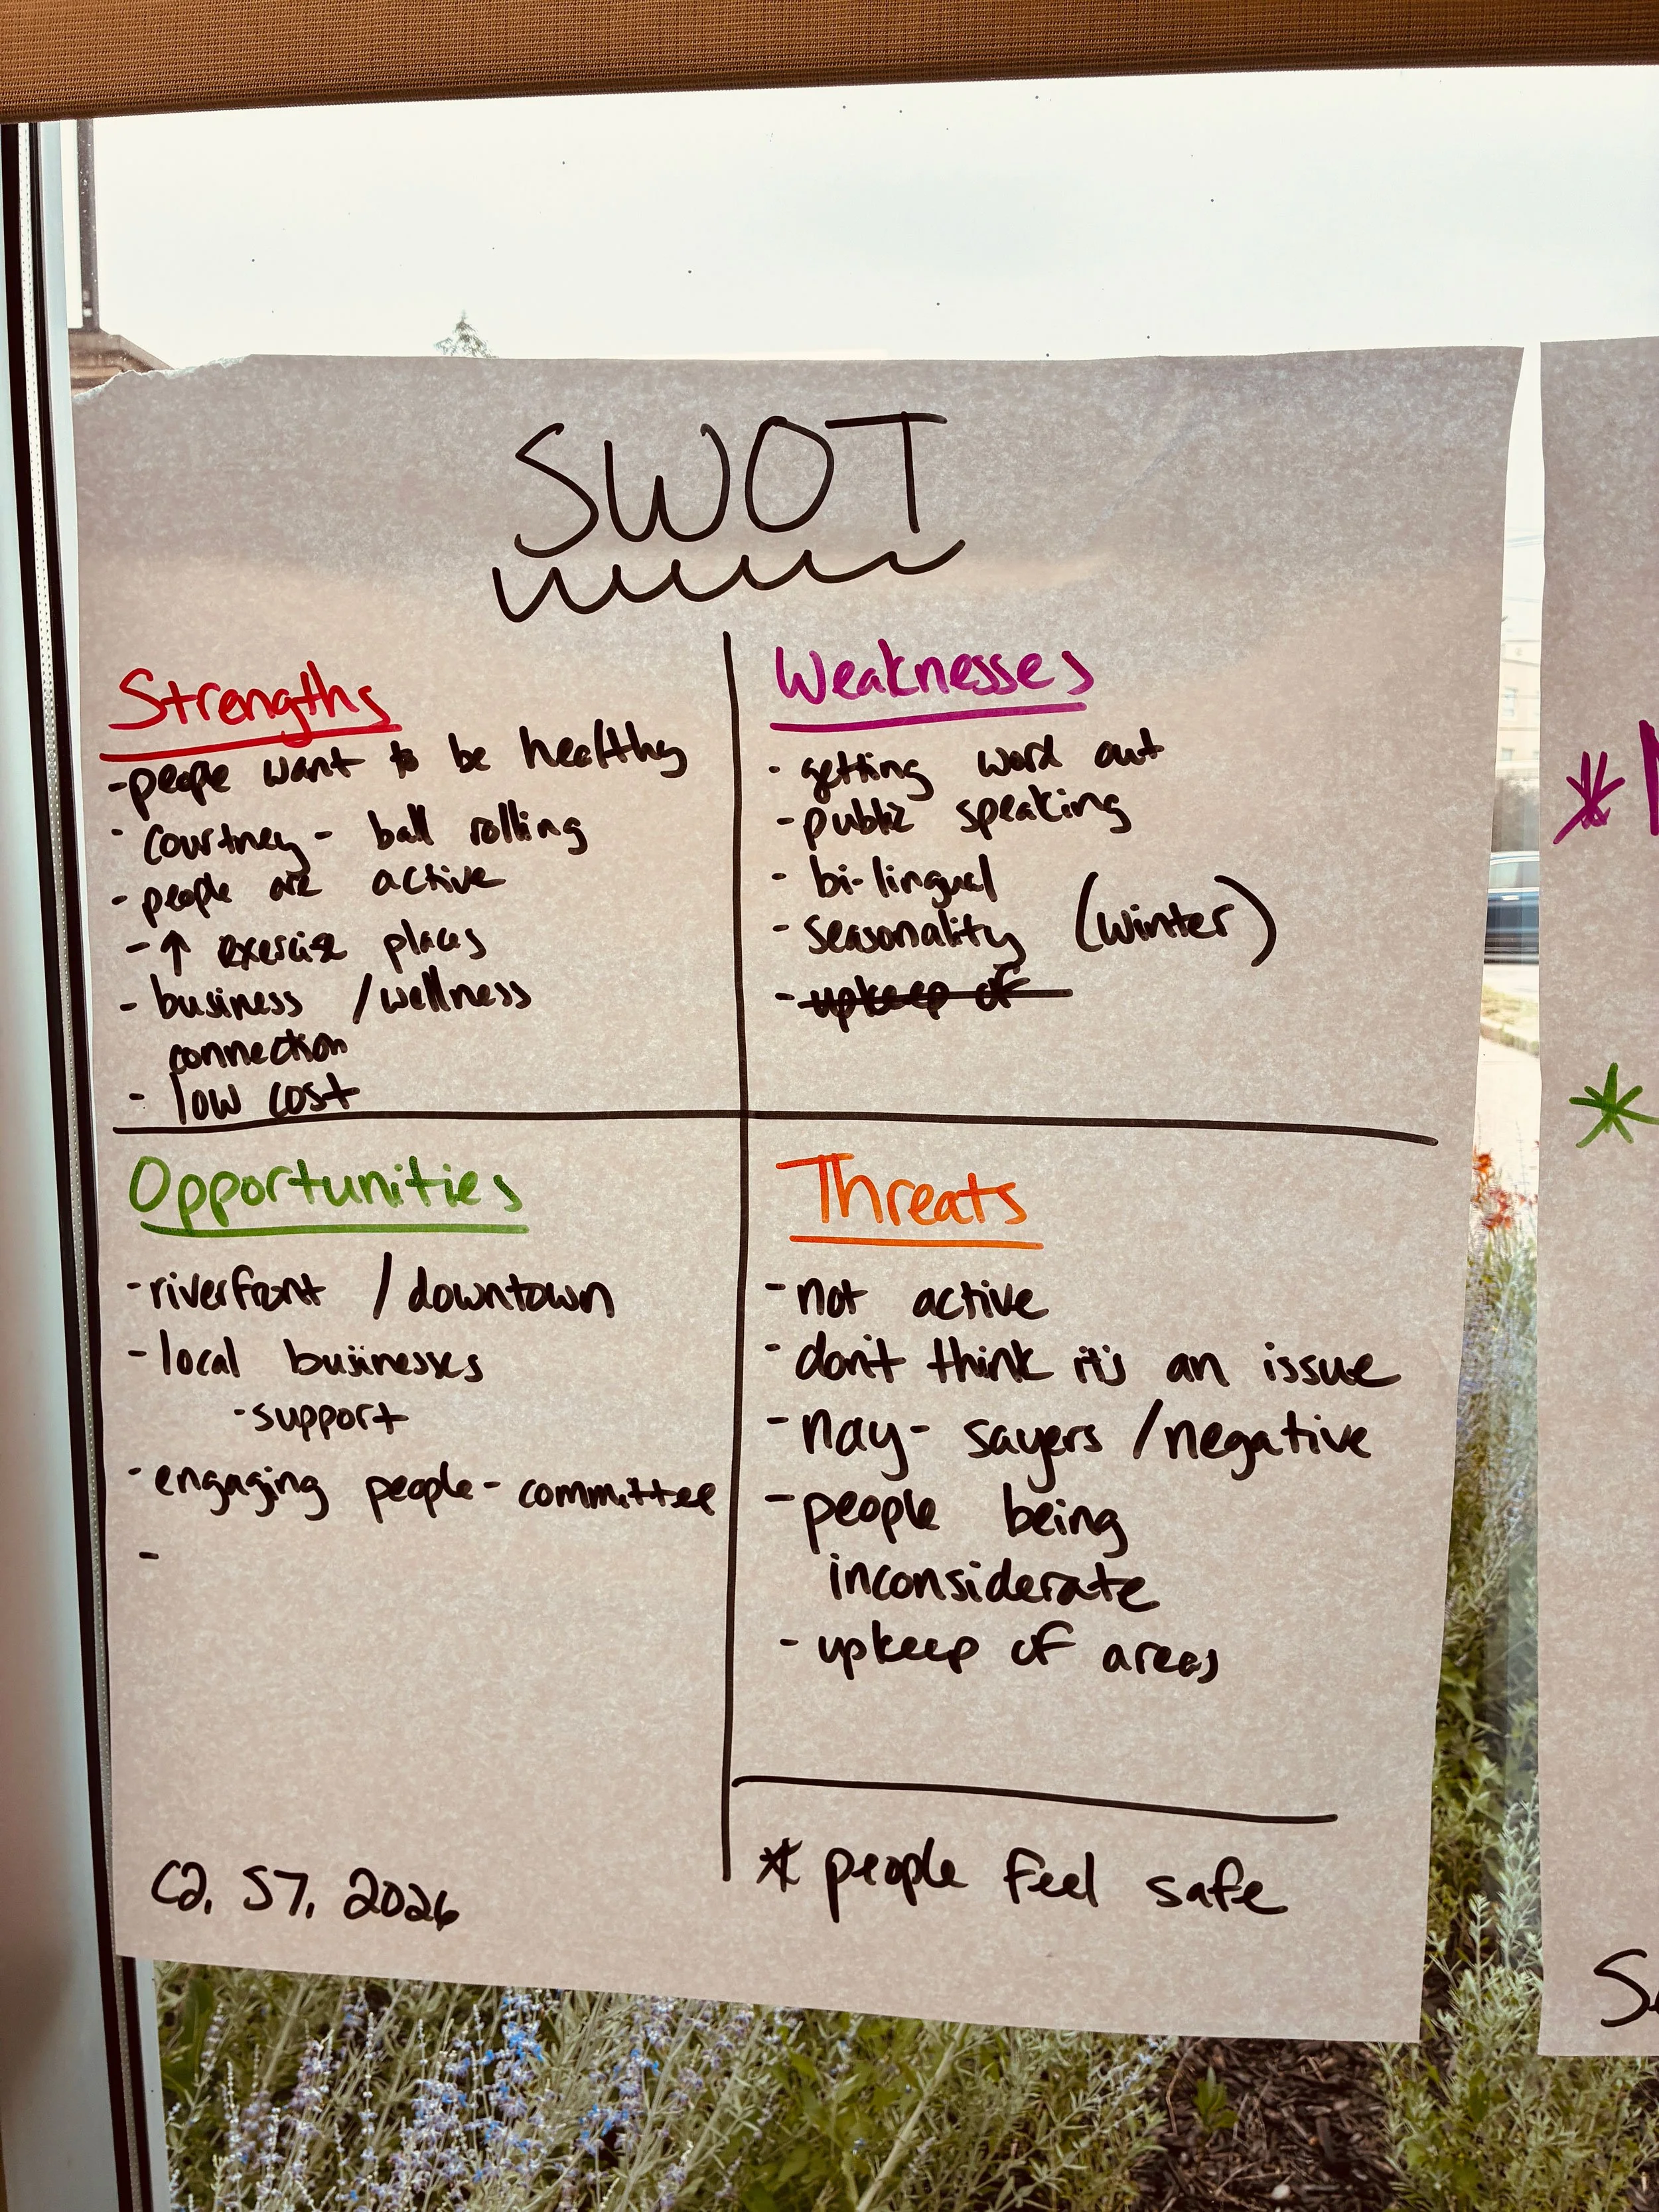 SWOT
Strengths
- people want to be healthy
- Courtney - ball rolling
- people are active
- ↑ exercise places
- business / wellness
connection
- low cost
Weaknesses
- getting word out
- public speaking
- bi-lingual
- seasonality (winter)
- upkeep of
Opportunities
- riverfront / downtown
- local businesses
- support
- engaging people - committee
-
Threats
- not active
- don't think it's an issue
- nay-sayers / negative
- people being
inconsiderate
- upkeep of areas
* people feel safe
C2, S7, 2026
*
*